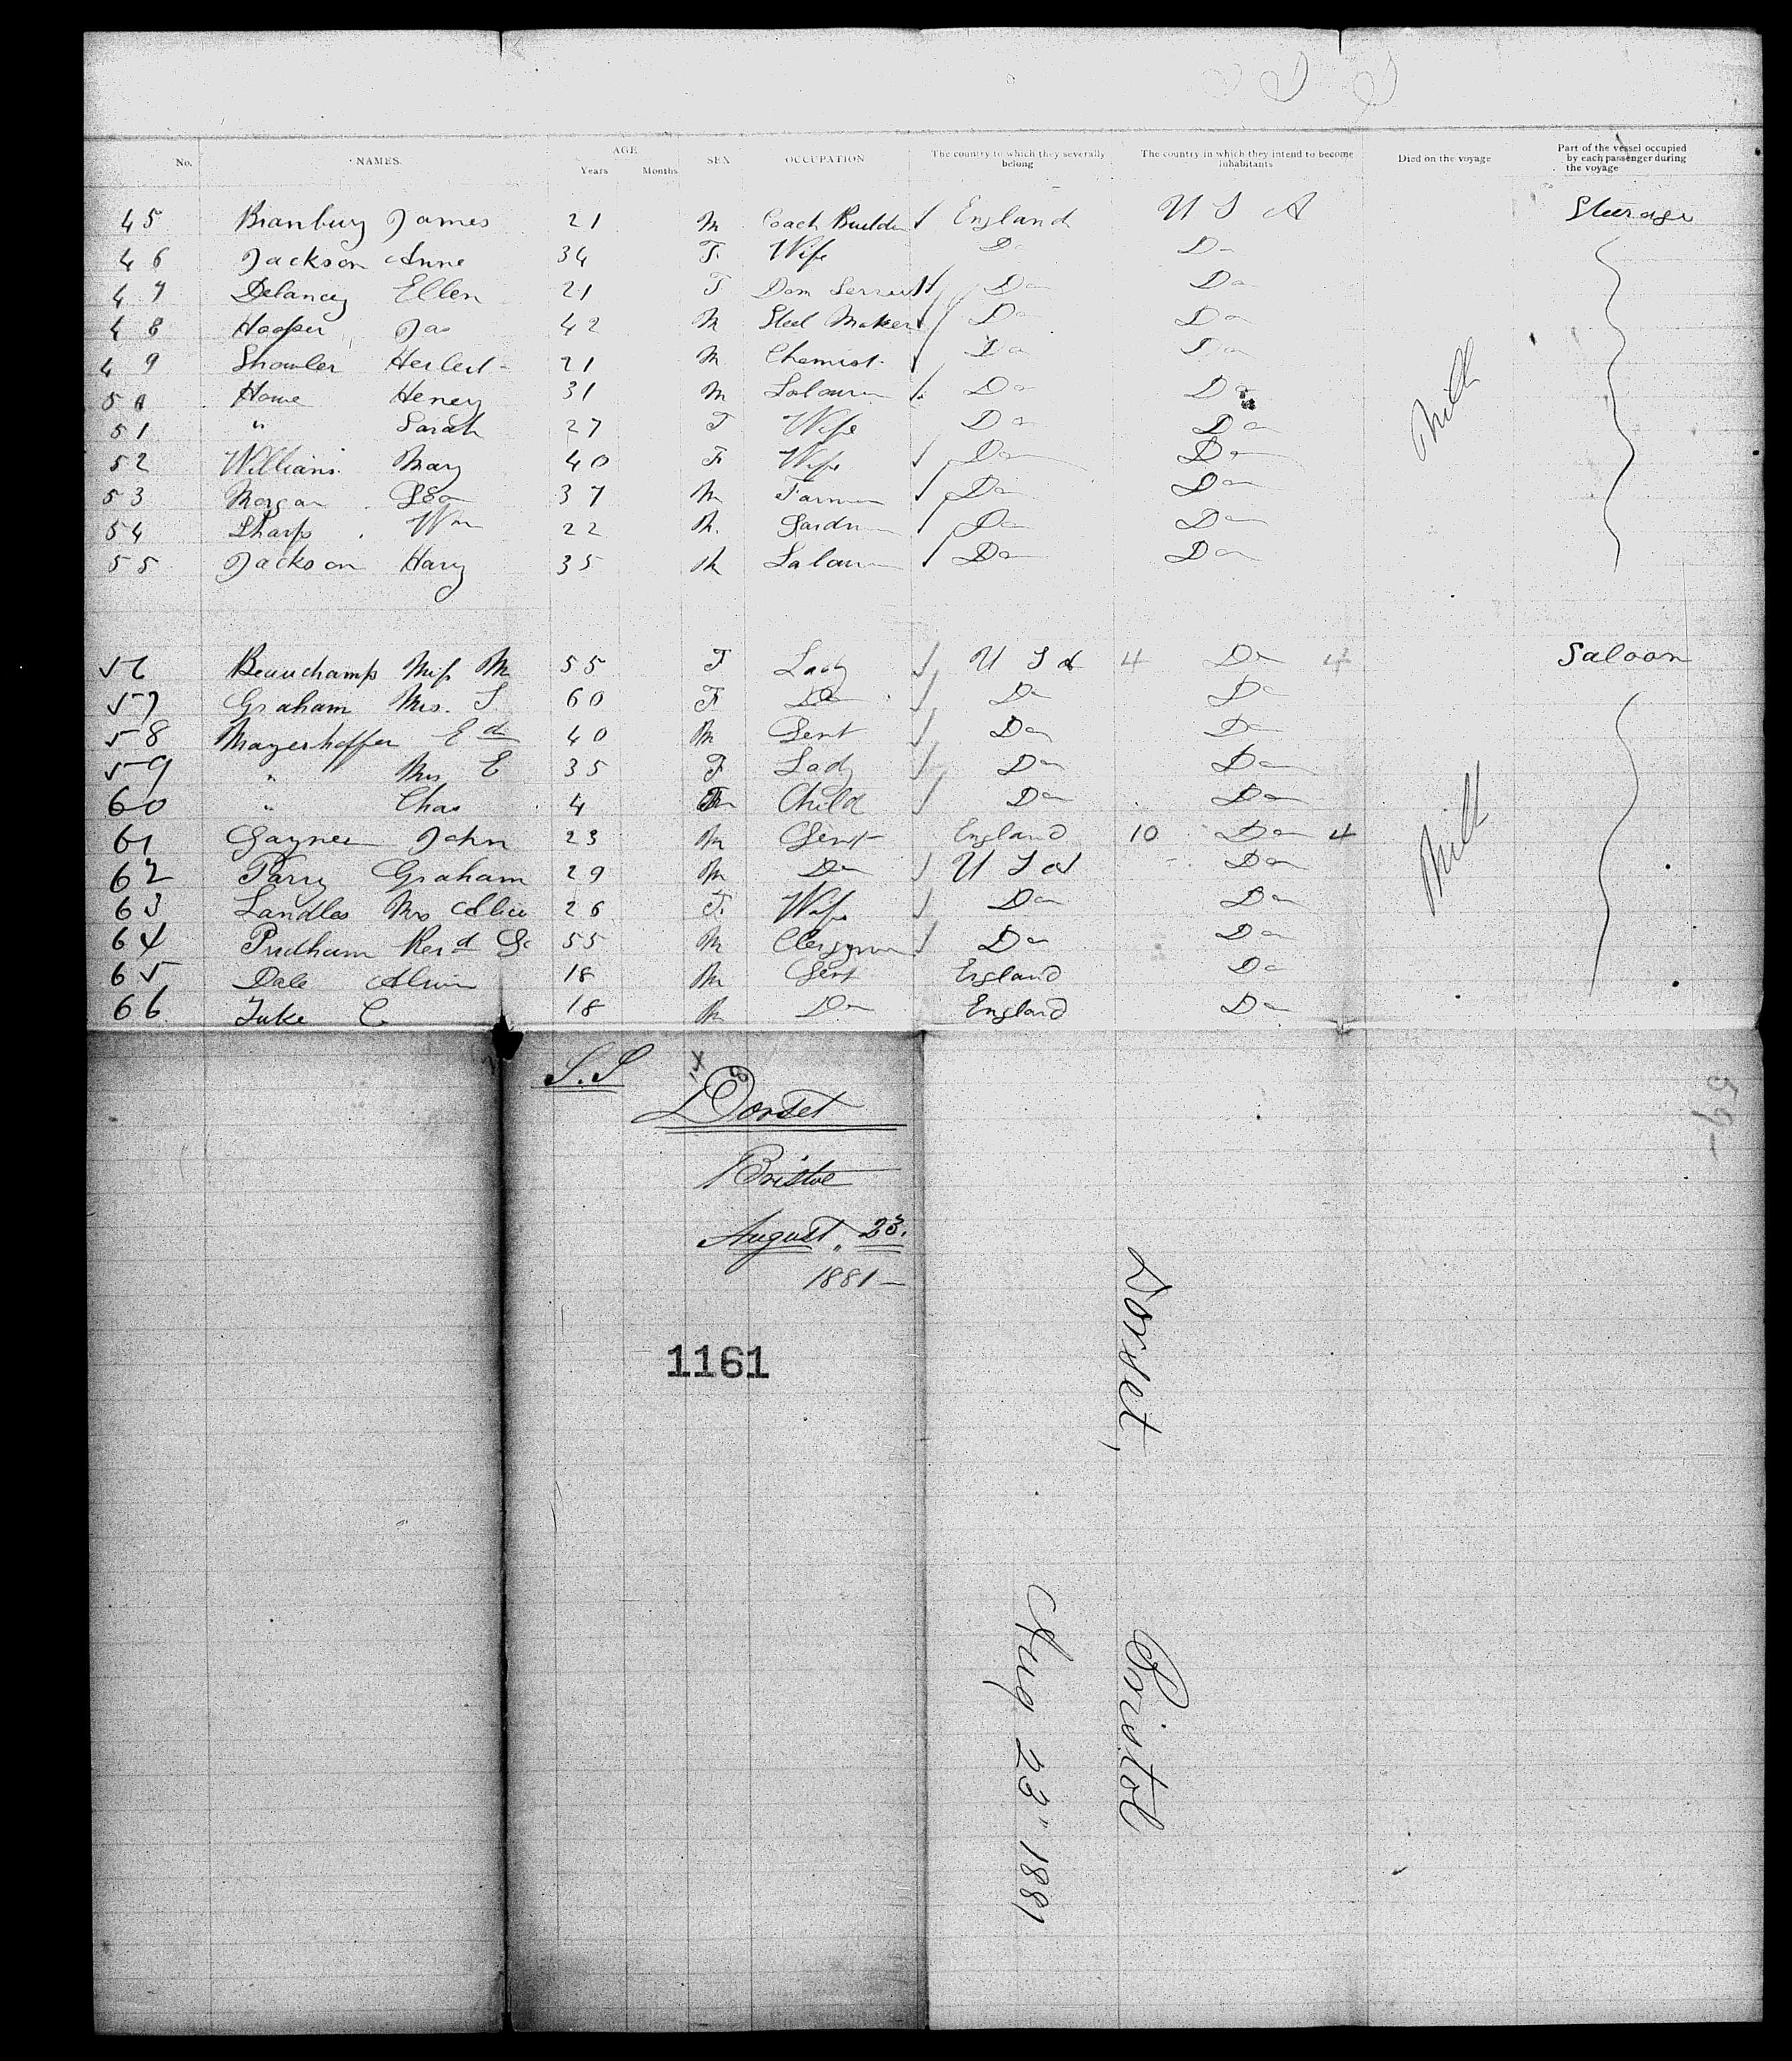 No. NAMES. AGE Years Months SEX OCCUPATION The country to which they severally belong The country in which they intend to become inhabitants Died on the voyage Part of the vessel occupied by each passenger during the voyage
45 Branbury James 21 M Coach Builder England U S A Steerage
46 Jackson Anne 34 F. Wife Do Do
47 Delancey Ellen 21 F Dom Servant Do Do
48 Hooper Jas 42 M Steel Maker Do Do
49 Showler Herbert 21 M Chemist Do Do
50 Howe Henry 31 M Labourer Do Do
51 " Sarah 27 F Wife Do Do
52 Williams Mary 40 F. Wife Do Do
53 Morgan Geo 37 M Farmer Do Do
54 Sharp Wm 22 M. Gardn Do Do
55 Jackson Harry 35 M Labour Do Do
56 Beauchamp Miss M 55 F Lady U S A 4 Do 4 Saloon
57 Graham Mrs. S 60 F Do Do Do
58 Mayerhoffer Ed 40 M Gent Do Do
59 " Mrs E 35 F Lady Do Do
60 " Chas 4 M Child Do Do
61 Gayner John 23 M Gent England 10 Do 4
62 Parry Graham 29 M Do U S A Do
63 Landles Mrs Alice 26 F. Wife Do Do
64 Prudham Revd Geo 55 M Clergyman Do Do
65 Dale Alwin 18 M Gent England Do
66 Tuke C 18 M Do England Do
Nill
Nill
S.S
Dorset
Bristol
August 23.
1881
1161
59
Dorset, Bristol
Aug 23" 1881